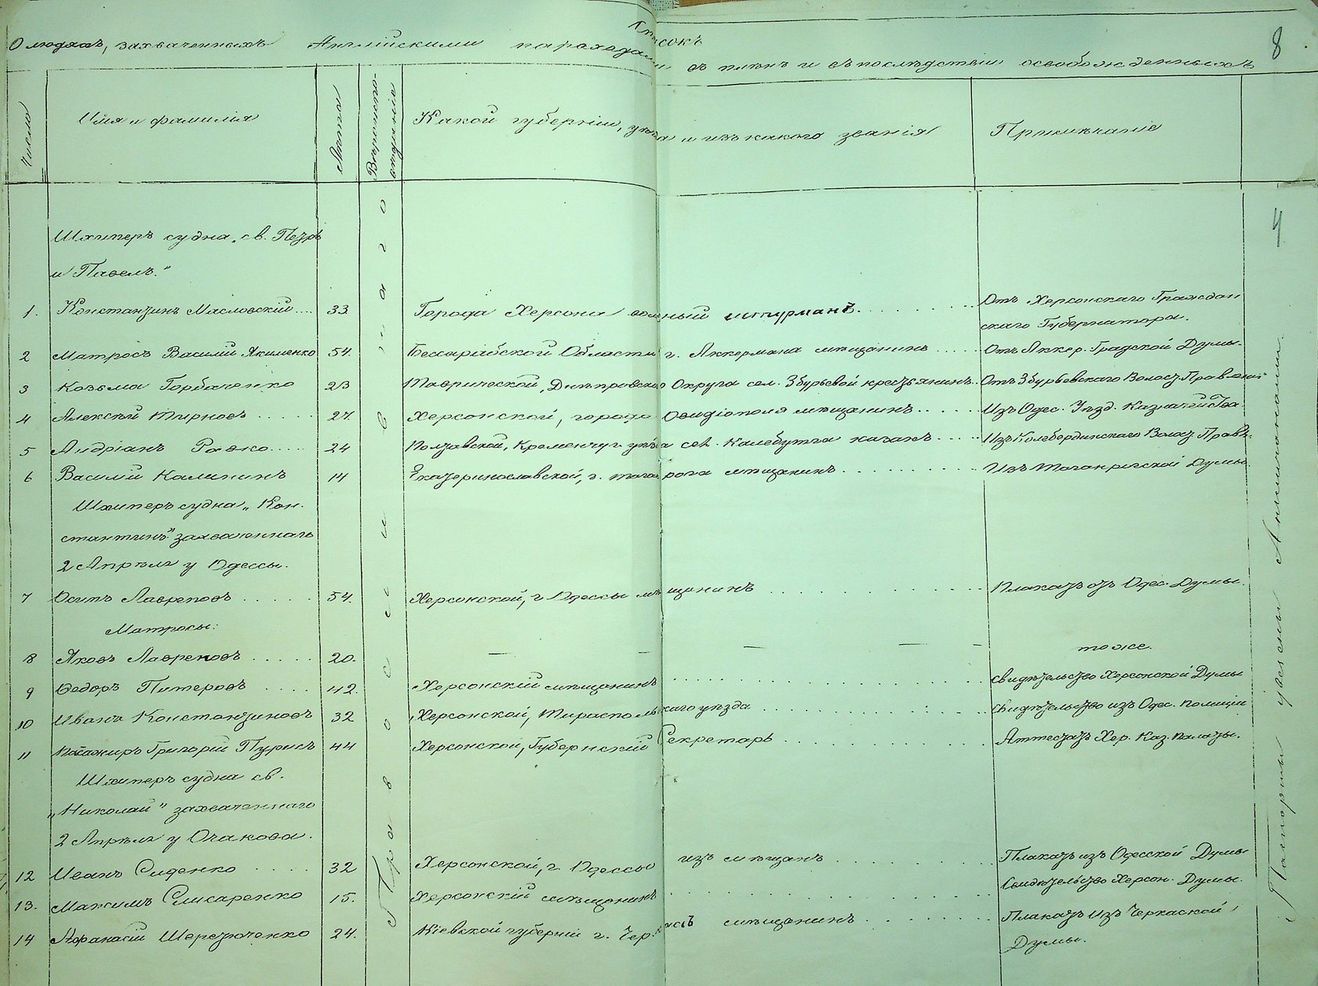 Списокъ
О людяхъ, захваченныхъ Англійскими пароходами въ плѣнъ и въ послѣдствіи освобожденныхъ
8
Число
Имя и фамилія
Лѣта
Вѣроисповѣданіе
Какой губерніи, уѣзда и изъ какого званія
Примѣчаніе
4
Шкиперъ судна „св. Петръ
и Павелъ."
1. Константинъ Масловскій.... 33 Города Херсона вольный штурманъ. Отъ Херсонскаго Граждан
скаго Губернатора.
2 Матросъ Василій Якименко 54. Бессарабской Области г. Аккермана мѣщанинъ Отъ Аккер. Градской Думы.
3 Козьма Горбаченко 23 Таврической, Днѣпровскаго Округа сел. Збурьевой крестьянинъ. Отъ Збурьевскаго Волост. Правленія
4 Алексѣй Тирновъ 27 Херсонской, города Овидіополя мѣщанинъ Изъ Одес. Уѣзд. Казначейства
5 Андріанъ 24 Полтавской, Кременчуг. уѣзда сел. козакъ Изъ Волост. Правл.
6 Василій Калининъ 14 Екатеринославской, г. Таганрога мѣщанинъ Изъ Таганрогской Думы
Шкиперъ судна „Кон.
стантинъ" захваченнаго
2 Апрѣля у Одессы.
7 Осипъ Лавреновъ 54. Херсонской, г. Одессы мѣщанинъ Плакатъ отъ Одес. Думы.
Матросы:
8 Яковъ Лавреновъ 20. — — — — тоже.
9 Ѳедоръ Питеровъ 42. Херсонскій мѣщанинъ Свидѣтельство Херсонской Думы
10 Иванъ Константиновъ 32 Херсонской, Тираспольскаго уѣзда Свидѣтельство изъ Одес. полиціи
11 Пассажиръ Григорій Пурисъ 44 Херсонской, Губернскій Секретарь Аттестатъ Хер. Каз. Палаты.
Шкиперъ судна св.
„Николай" захваченнаго
2 Апрѣля у Очакова.
12 Иванъ Сиденко 32 Херсонской, г. Одессы изъ мѣщанъ Плакатъ изъ Одесской Думы
13. Максимъ Слисаренко 15. Херсонскій мѣщанинъ Свидѣтельство Херсон. Думы.
14 Аѳанасій Шерстюченко 24. Кіевской губерніи г. Черкасъ мѣщанинъ Плакатъ изъ Черкаской
Думы.
Православнаго
Паспорты взяты Англичанами